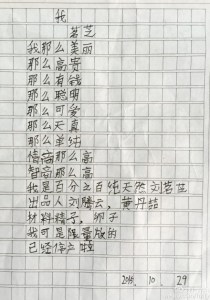 我
茗芝
我那么美丽
那么高贵
那么有钱
那么聪明
那么可爱
那么天真
那么单纯
情商那么高
智商那么高
我是百分之百纯天然刘茗芝
出品人刘腾云，黄丹喆
材料精子，卵子
我可是限量版的
已经停产啦
10. 29